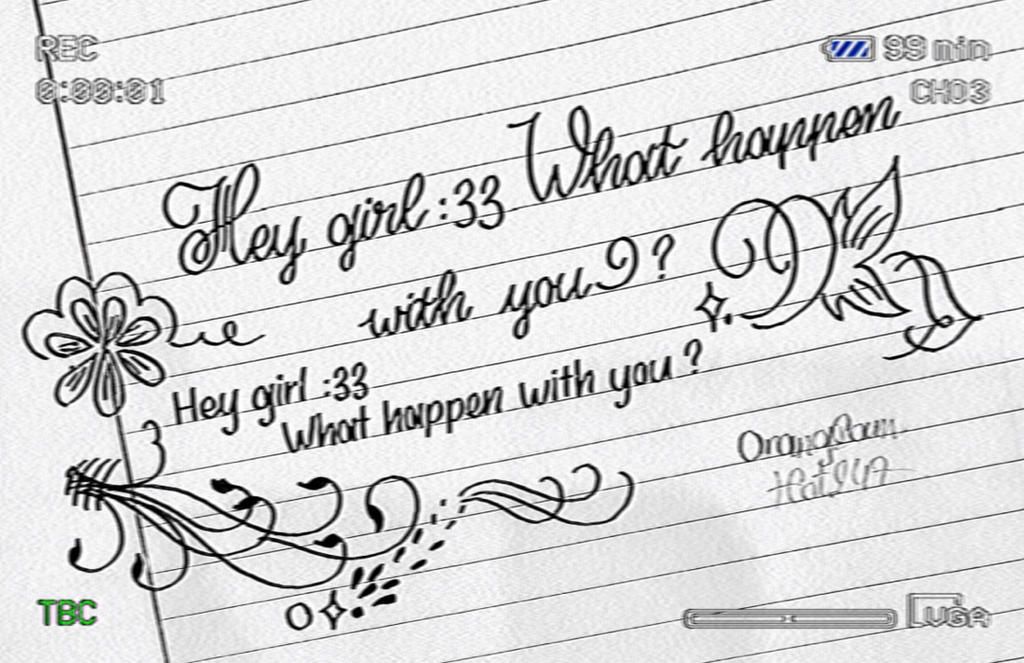 REC
99 min
0:00:01
CH03
Hey girl :33 What happen
with you ?
Hey girl :33
What happen with you ?
TBC
VGA